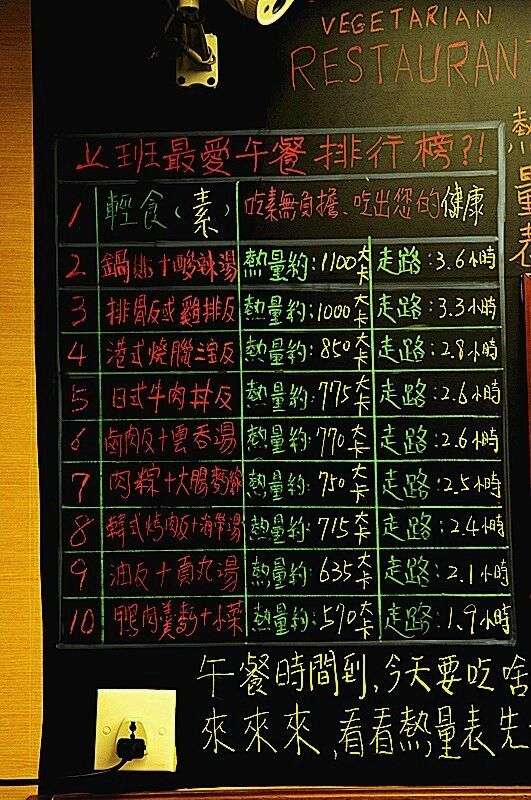 VEGETARIAN
RESTAURAN
上班最愛午餐排行榜?!
1 輕食(素) 吃素無負擔、吃出您的健康
2 鍋貼+酸辣湯 熱量約:1100大卡 走路:3.6小時
3 排骨反或雞排反 熱量約:1000大卡 走路:3.3小時
4 港式燒臘三宝反 熱量約:850大卡 走路:2.8小時
5 日式牛肉丼反 熱量約:775大卡 走路:2.6小時
6 卤肉反+雲吞湯 熱量約:770大卡 走路:2.6小時
7 肉粽+大腸麵線 熱量約:750大卡 走路:2.5小時
8 韓式烤肉反+海帶湯 熱量約:715大卡 走路:2.4小時
9 油反+貢丸湯 熱量約:635大卡 走路:2.1小時
10 鴨肉羹麵+小菜 熱量約:570大卡 走路:1.9小時
午餐時間到,今天要吃啥
來來來,看看熱量表先
熱量表